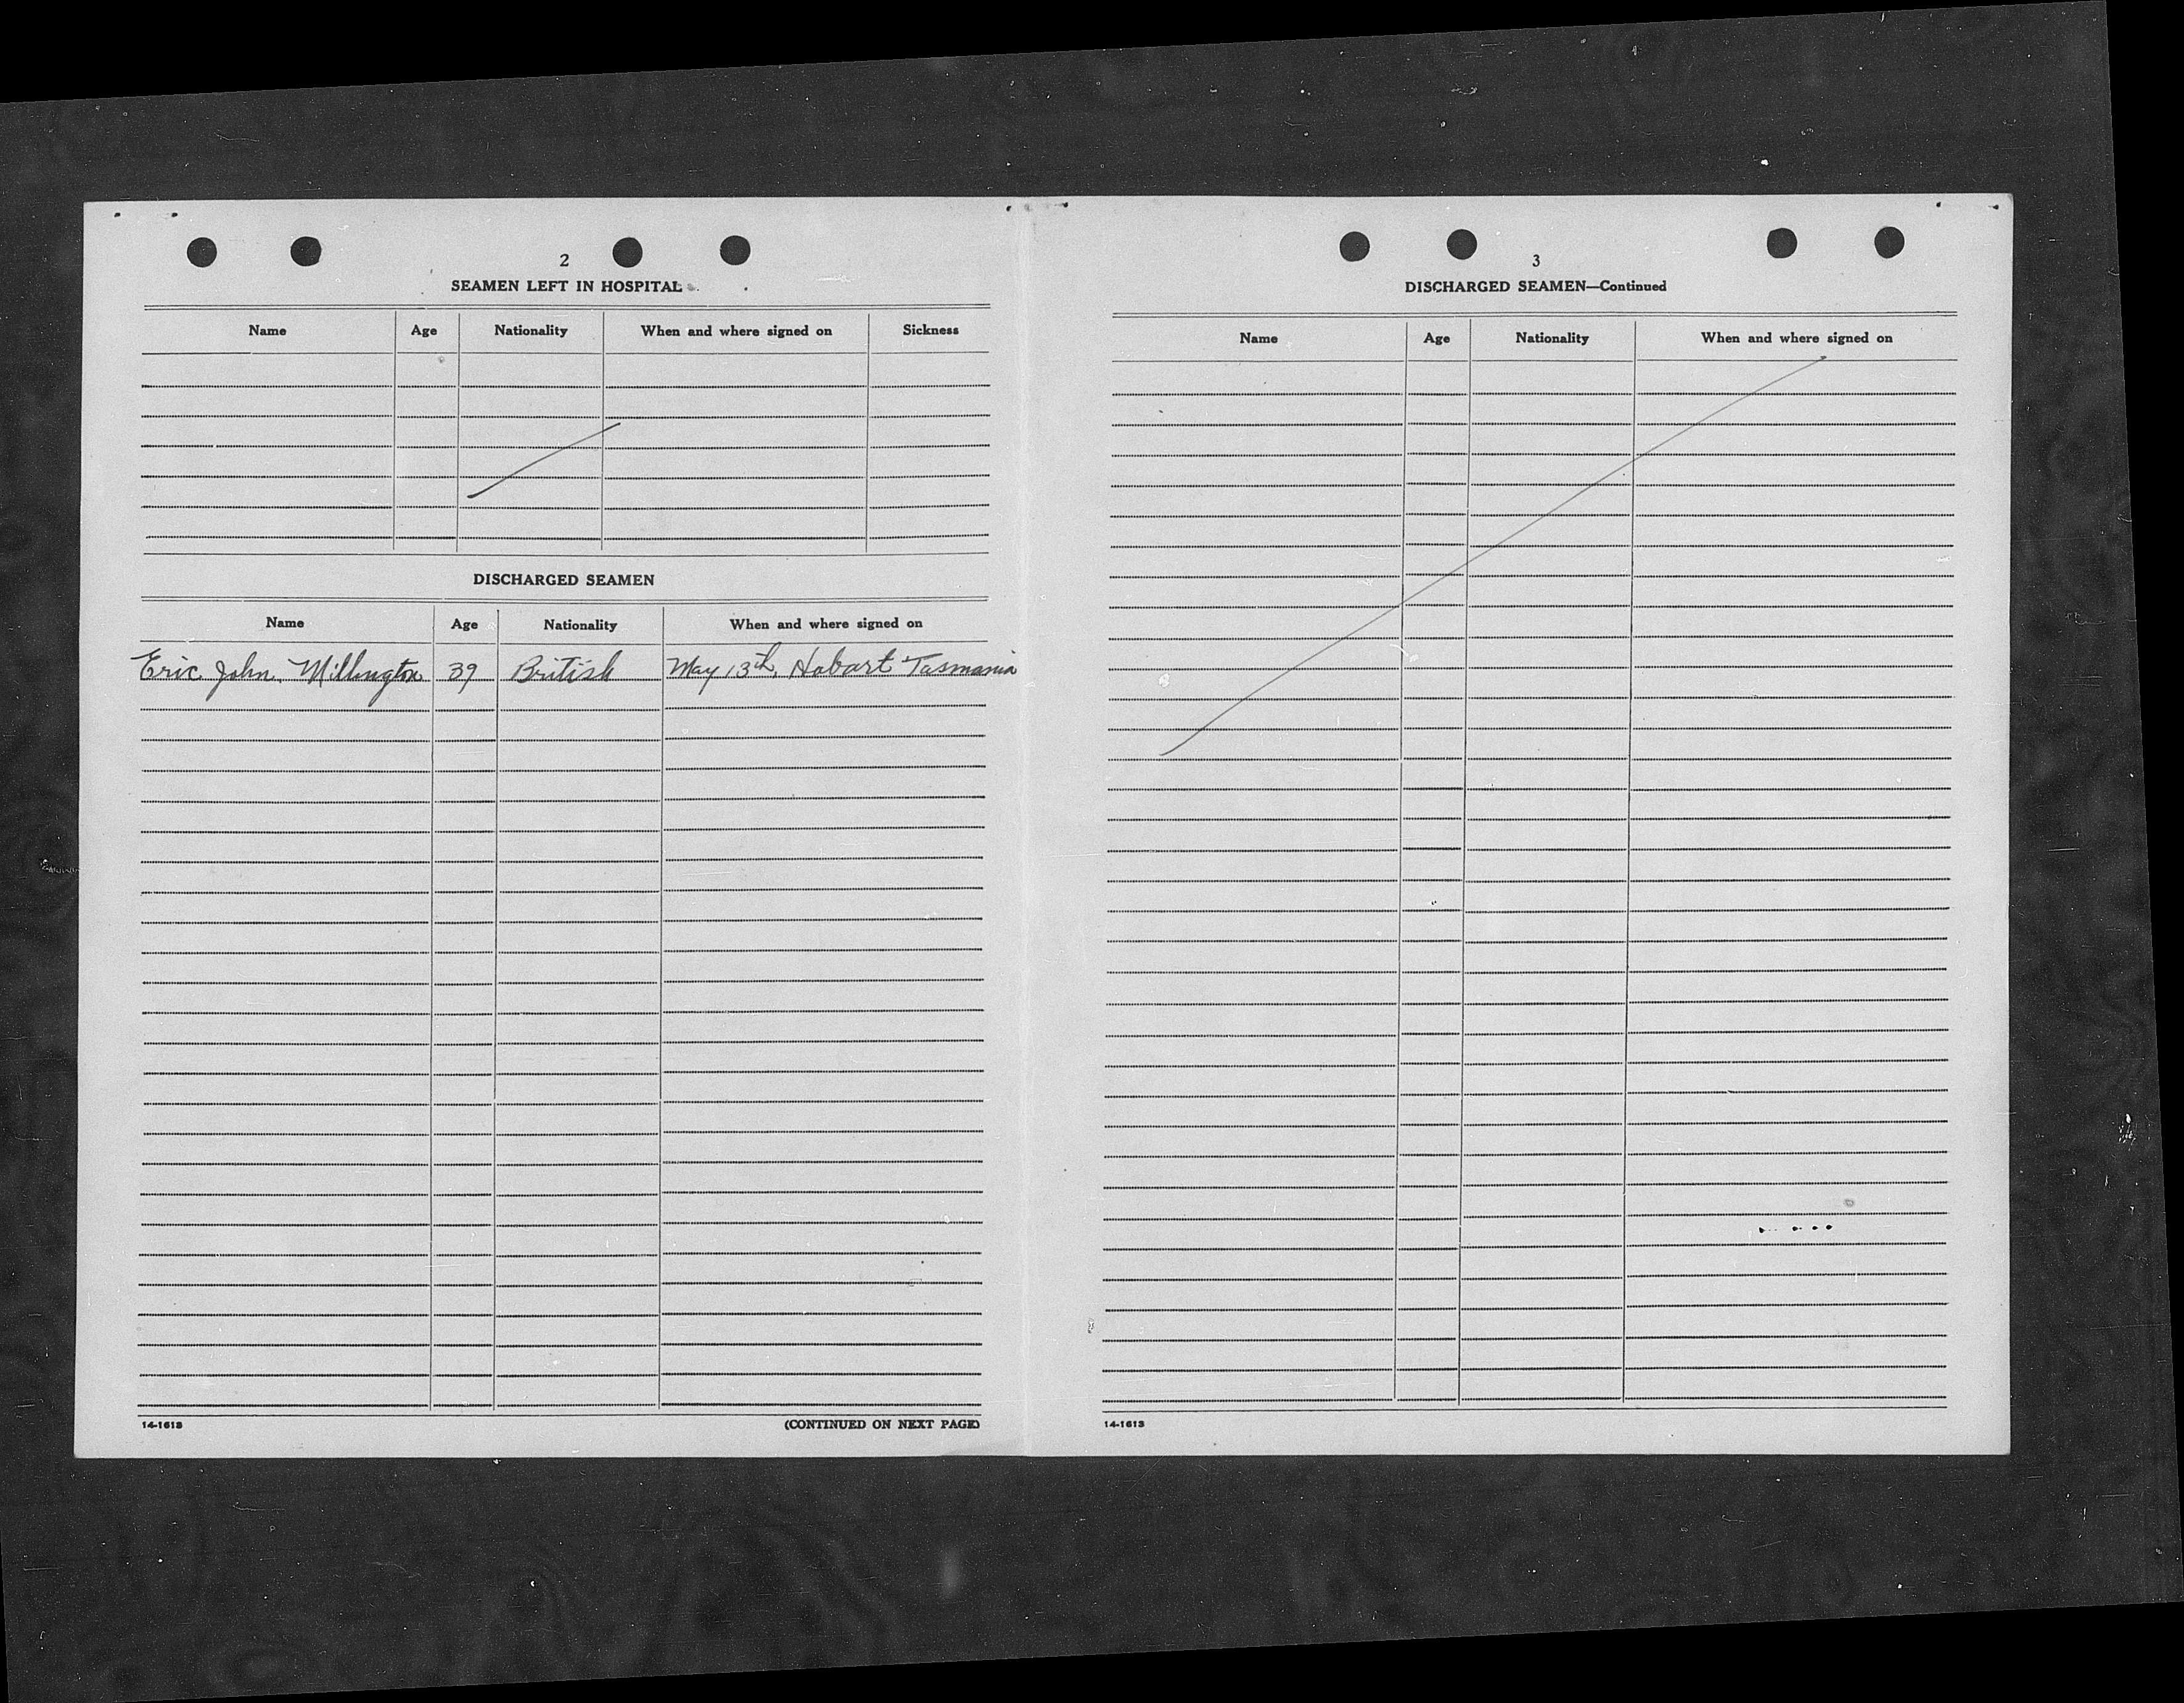 2
SEAMEN LEFT IN HOSPITAL
Name Age Nationality When and where signed on Sickness
DISCHARGED SEAMEN
Name Age Nationality When and where signed on
Eric John Millington 39 British May 13th, Hobart Tasmania
14-1613 (CONTINUED ON NEXT PAGE)
3
DISCHARGED SEAMEN—Continued
Name Age Nationality When and where signed on
14-1613